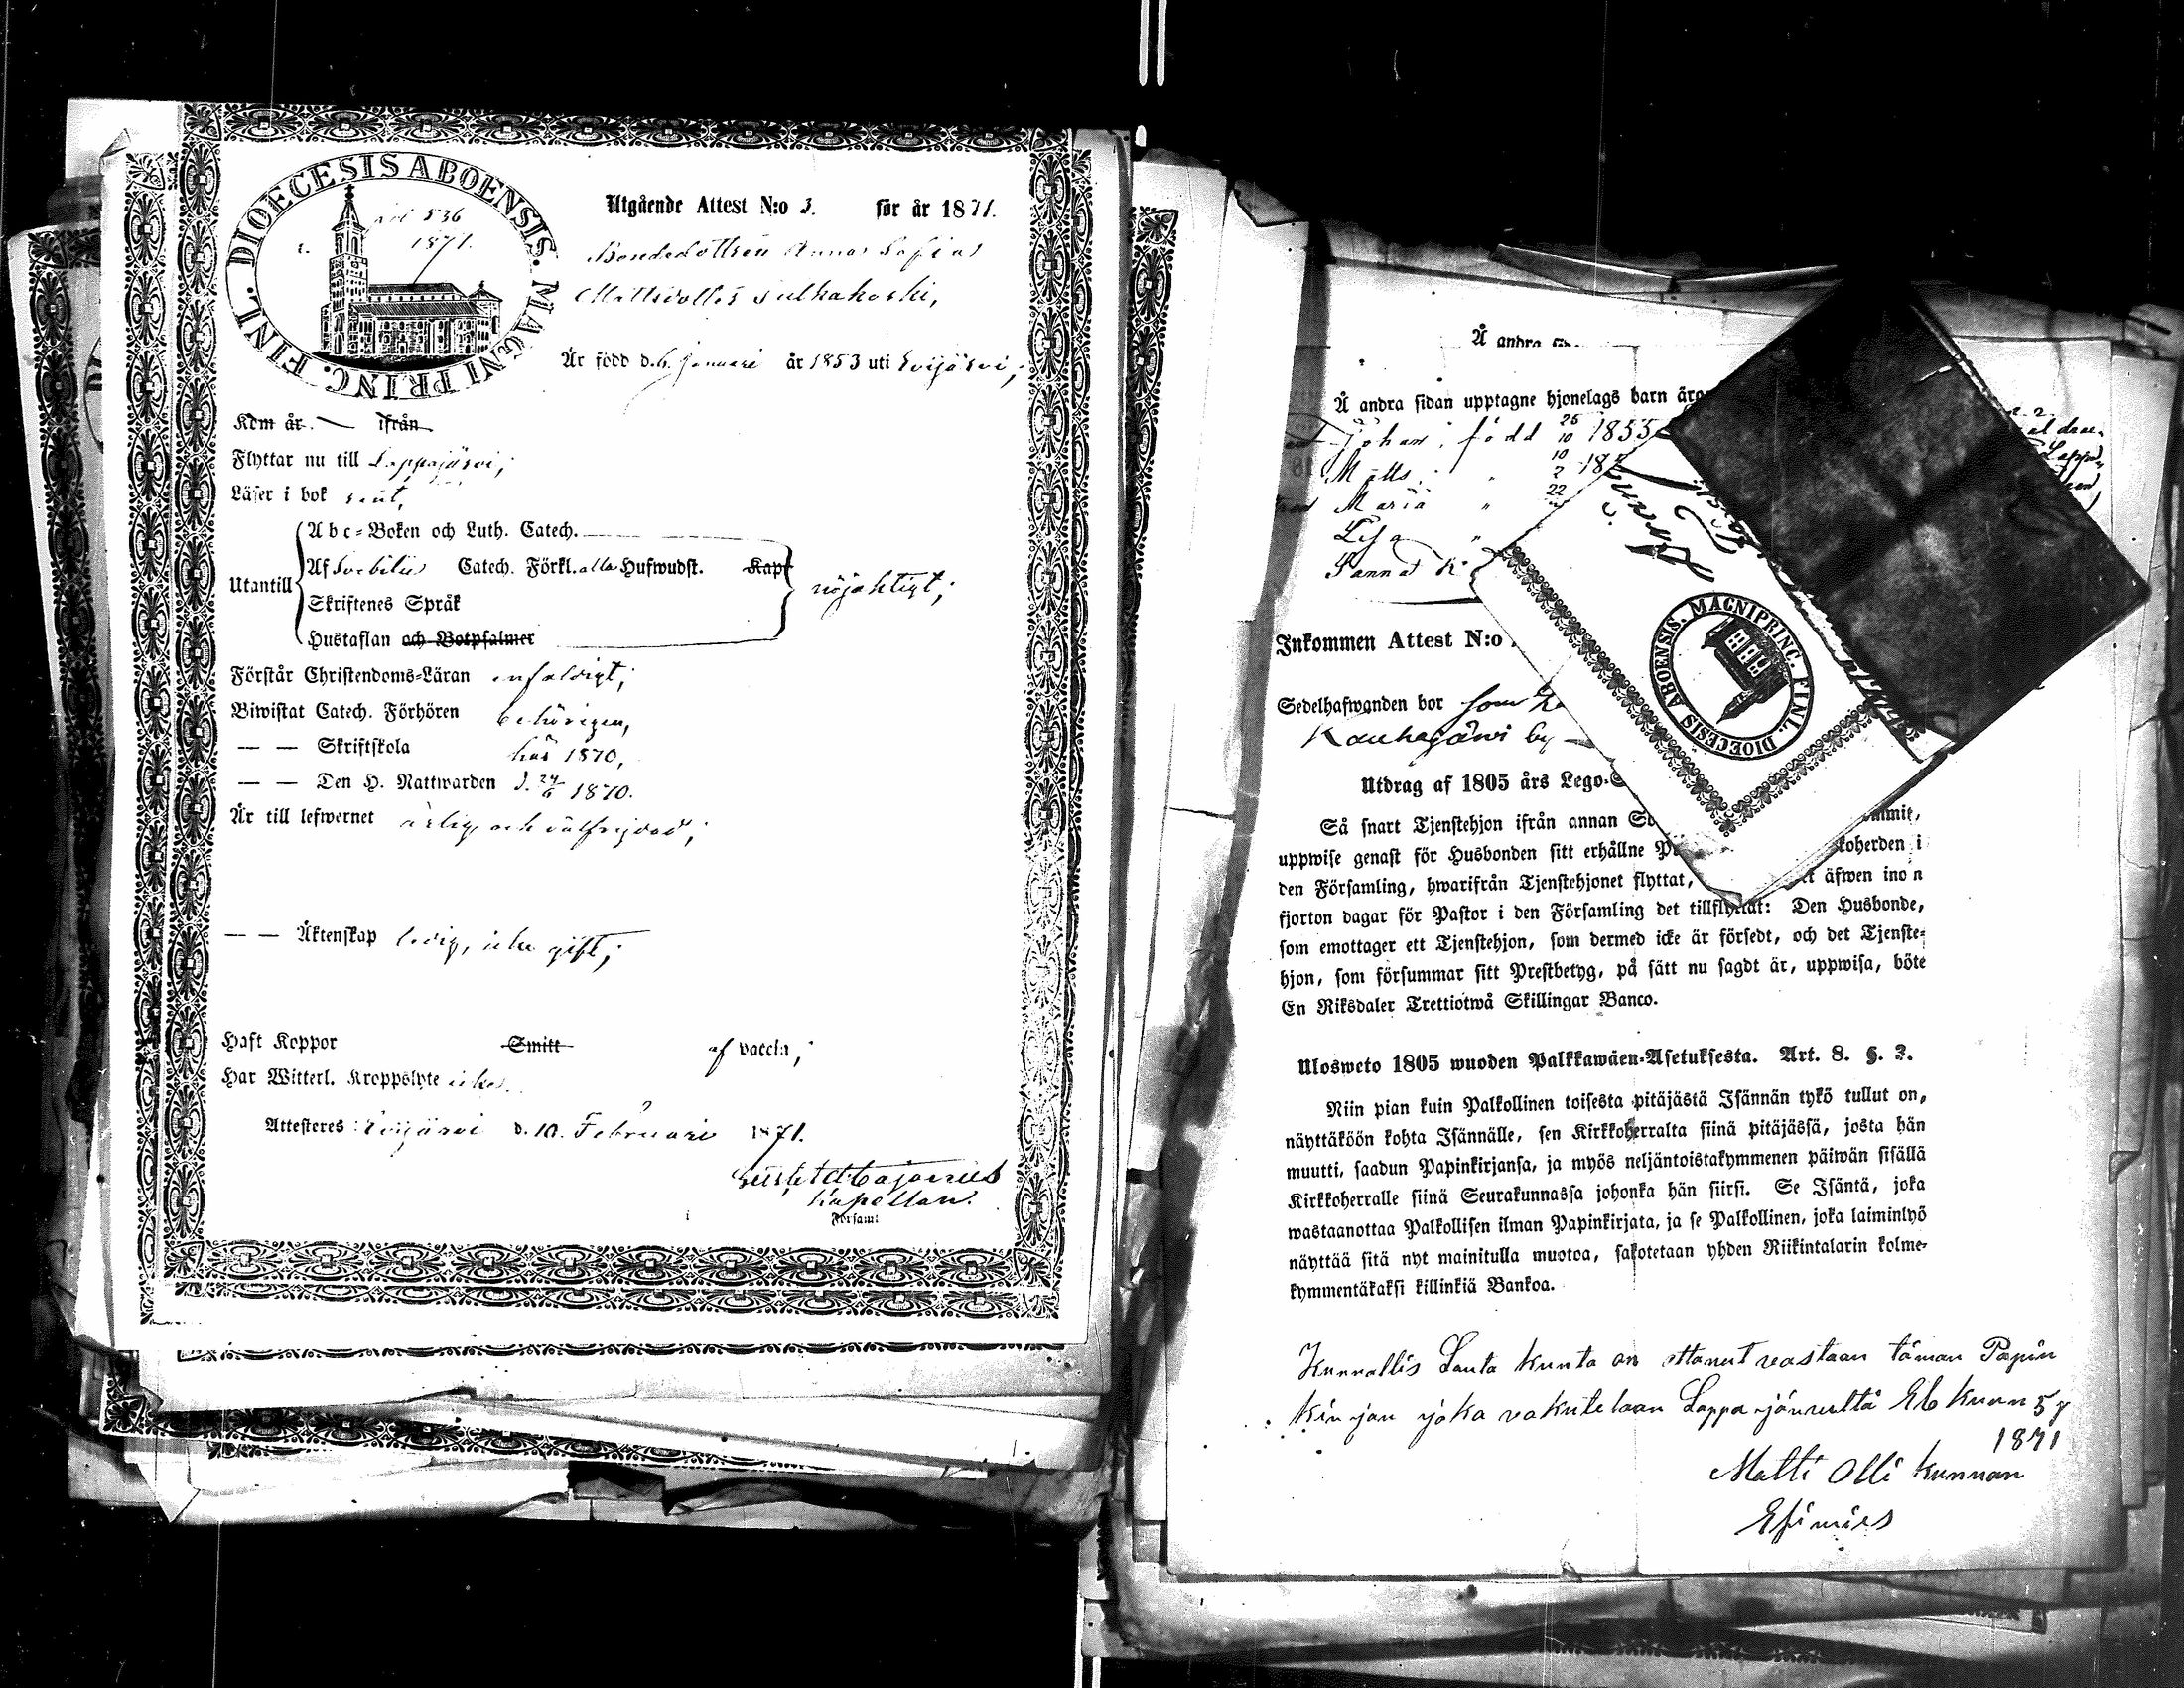 DIOECESIS ABOENSIS. MAGNI PRINC. FINL.
536
1871.
Utgående Attest N:o 3. för år 1871.
Bondedottren Anna Sofia
Mattsdotter Sulkakoski,
Är född d. 6 Januari år 1853 uti Evijärvi;
Kom år ifrån
Flyttar nu till Lappajärvi;
Läser i bok rent,
Utantill
A b c-Boken och Luth. Catech.
Af Svebilii Catech. Förkl. alla Hufwudst. Kap.
Skriftenes Språk
Hustaflan och Botpsalmer
nöjaktigt;
Förstår Christendoms-Läran enfaldigt;
Biwistat Catech. Förhören behörigen,
— — Skriftskola här 1870,
— — Den H. Nattwarden d. 24/6 1870.
Är till lefwernet ärlig och välfrejdad;
— — Äktenskap ledig, icke gift;
Haft Koppor Smitt af vaccin;
Har Witterl. Kroppslyte icke.
Attesteres Evijärvi d. 10. Februari 1871.
Kapellan.
Församl
Å andra
Å andra sidan upptagne hjonelags barn äro
Johan, född 26/10 1855
Matts " 10/2 18
Maria " 22
Lisa "
Sanna K
Inkommen Attest N:o
Sedelhafwanden bor som
Kauhajärwi by
DIOECESIS ABOENSIS. MAGNI PRINC. FINL.
Utdrag af 1805 års Lego-S
Så snart Tjenstehjon ifrån annan So ommit,
uppwise genast för Husbonden sitt erhållne P koherden i
den Församling, hwarifrån Tjenstehjonet flyttat, äfwen inon
fjorton dagar för Pastor i den Församling det tillflyttat: Den Husbonde,
som emottager ett Tjenstehjon, som dermed icke är försedt, och det Tjenste-
hjon, som försummar sitt Prestbetyg, på sätt nu sagdt är, uppwisa, böte
En Riksdaler Trettiotwå Skillingar Banco.
Ulosweto 1805 wuoden Palkkawäen-Asetuksesta. Art. 8. §. 3.
Niin pian kuin Palkollinen toisesta pitäjästä Isännän tykö tullut on,
näyttäköön kohta Isännälle, sen Kirkkoherralta siinä pitäjässä, josta hän
muutti, saadun Papinkirjansa, ja myös neljäntoistakymmenen päiwän sisällä
Kirkkoherralle siinä Seurakunnassa johonka hän siirsi. Se Isäntä, joka
wastaanottaa Palkollisen ilman Papinkirjata, ja se Palkollinen, joka laiminlyö
näyttää sitä nyt mainitulla muotoa, sakotetaan yhden Riikintalarin kolme-
kymmentäkaksi killinkiä Bankoa.
Kunnallis Lauta kunta on ottanut vastaan tämän Papin
kirjan joka vakutetaan Lappajärveltä Elo kuun 5 p
1871
Matti Olli kunnan
Esimies